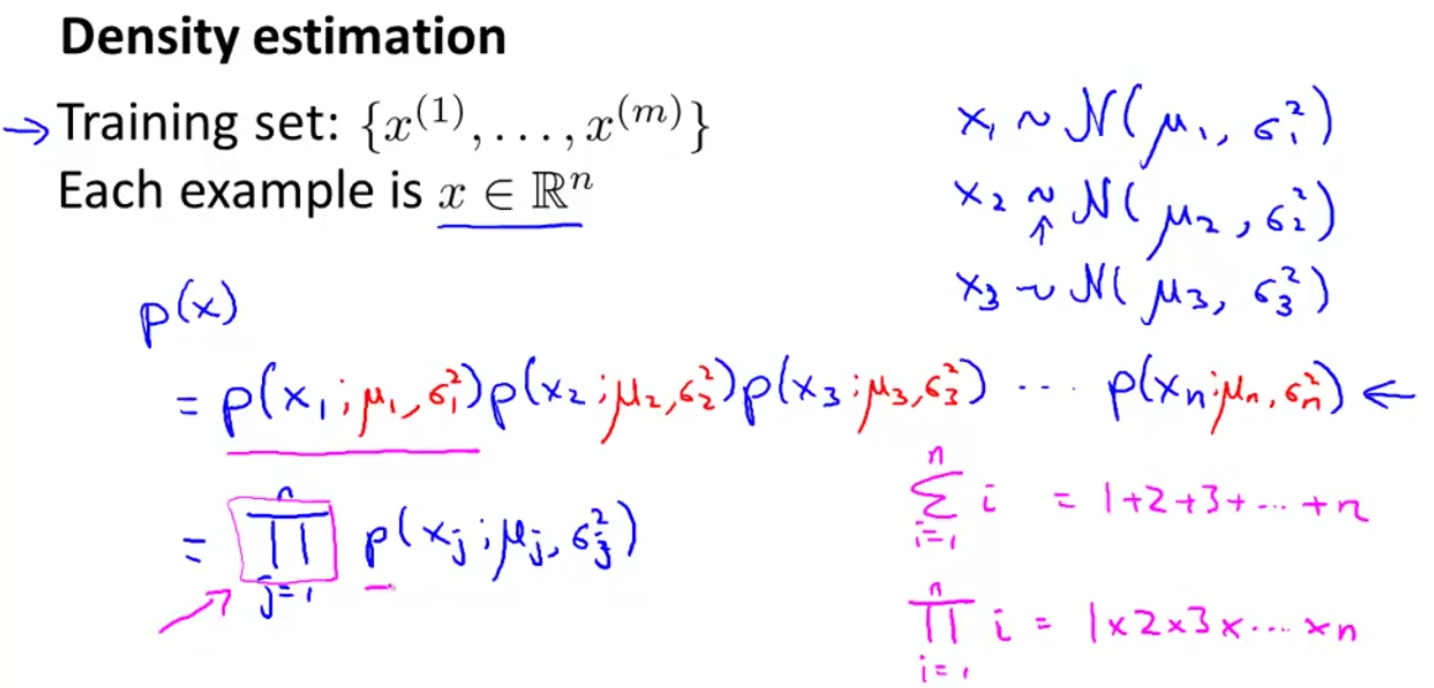 Density estimation
→ Training set: {x⁽¹⁾, . . . , x⁽ᵐ⁾}
Each example is x ∈ ℝⁿ
x₁ ~ N(μ₁, σ₁²)
x₂ ~ N(μ₂, σ₂²)
↑
x₃ ~ N(μ₃, σ₃²)
p(x)
= p(x₁; μ₁, σ₁²) p(x₂; μ₂, σ₂²) p(x₃; μ₃, σ₃²) ··· p(xₙ; μₙ, σₙ²) ←
= ∏ⱼ₌₁ⁿ p(xⱼ; μⱼ, σⱼ²)
∑ᵢ₌₁ⁿ i = 1+2+3+...+n
∏ᵢ₌₁ⁿ i = 1×2×3×...×n